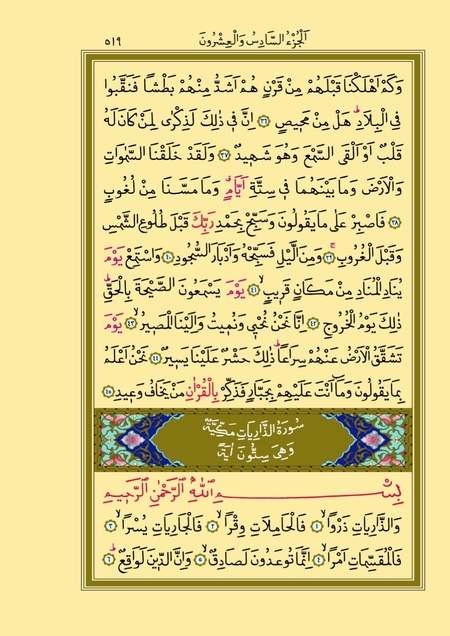 اَلْجُزْءُ السَّادِسُ وَالْعِشْرُونَ ٥١٩
وَكَمْ اَهْلَكْنَا قَبْلَهُمْ مِنْ قَرْنٍ هُمْ اَشَدُّ مِنْهُمْ بَطْشًا فَنَقَّبُوا
فِي الْبِلَادِۜ هَلْ مِنْ مَحِيصٍ ﴿٣٦﴾ اِنَّ فِي ذٰلِكَ لَذِكْرٰى لِمَنْ كَانَ لَهُ
قَلْبٌ اَوْ اَلْقَى السَّمْعَ وَهُوَ شَهِيدٌ ﴿٣٧﴾ وَلَقَدْ خَلَقْنَا السَّمٰوَاتِ
وَالْاَرْضَ وَمَا بَيْنَهُمَا فِي سِتَّةِ اَيَّامٍۗ وَمَا مَسَّنَا مِنْ لُغُوبٍ
﴿٣٨﴾ فَاصْبِرْ عَلٰى مَا يَقُولُونَ وَسَبِّحْ بِحَمْدِ رَبِّكَ قَبْلَ طُلُوعِ الشَّمْسِ
وَقَبْلَ الْغُرُوبِۚ ﴿٣٩﴾ وَمِنَ الَّيْلِ فَسَبِّحْهُ وَاَدْبَارَ السُّجُودِ ﴿٤٠﴾ وَاسْتَمِعْ يَوْمَ
يُنَادِ الْمُنَادِ مِنْ مَكَانٍ قَرِيبٍۙ ﴿٤١﴾ يَوْمَ يَسْمَعُونَ الصَّيْحَةَ بِالْحَقِّۜ
ذٰلِكَ يَوْمُ الْخُرُوجِ ﴿٤٢﴾ اِنَّا نَحْنُ نُحْيِي وَنُمِيتُ وَاِلَيْنَا الْمَصِيرُۙ ﴿٤٣﴾ يَوْمَ
تَشَقَّقُ الْاَرْضُ عَنْهُمْ سِرَاعًاۜ ذٰلِكَ حَشْرٌ عَلَيْنَا يَسِيرٌ ﴿٤٤﴾ نَحْنُ اَعْلَمُ
بِمَا يَقُولُونَ وَمَا اَنْتَ عَلَيْهِمْ بِجَبَّارٍ فَذَكِّرْ بِالْقُرْاٰنِ مَنْ يَخَافُ وَعِيدِ ﴿٤٥﴾
سُورَةُ الذَّارِيَاتِ مَكِّيَّةٌ
وَهِيَ سِتُّونَ اٰيَةً
بِسْمِ اللّٰهِ الرَّحْمٰنِ الرَّحِيمِ
وَالذَّارِيَاتِ ذَرْوًاۙ ﴿١﴾ فَالْحَامِلَاتِ وِقْرًاۙ ﴿٢﴾ فَالْجَارِيَاتِ يُسْرًاۙ ﴿٣﴾
فَالْمُقَسِّمَاتِ اَمْرًاۙ ﴿٤﴾ اِنَّمَا تُوعَدُونَ لَصَادِقٌۙ ﴿٥﴾ وَاِنَّ الدِّينَ لَوَاقِعٌۜ ﴿٦﴾